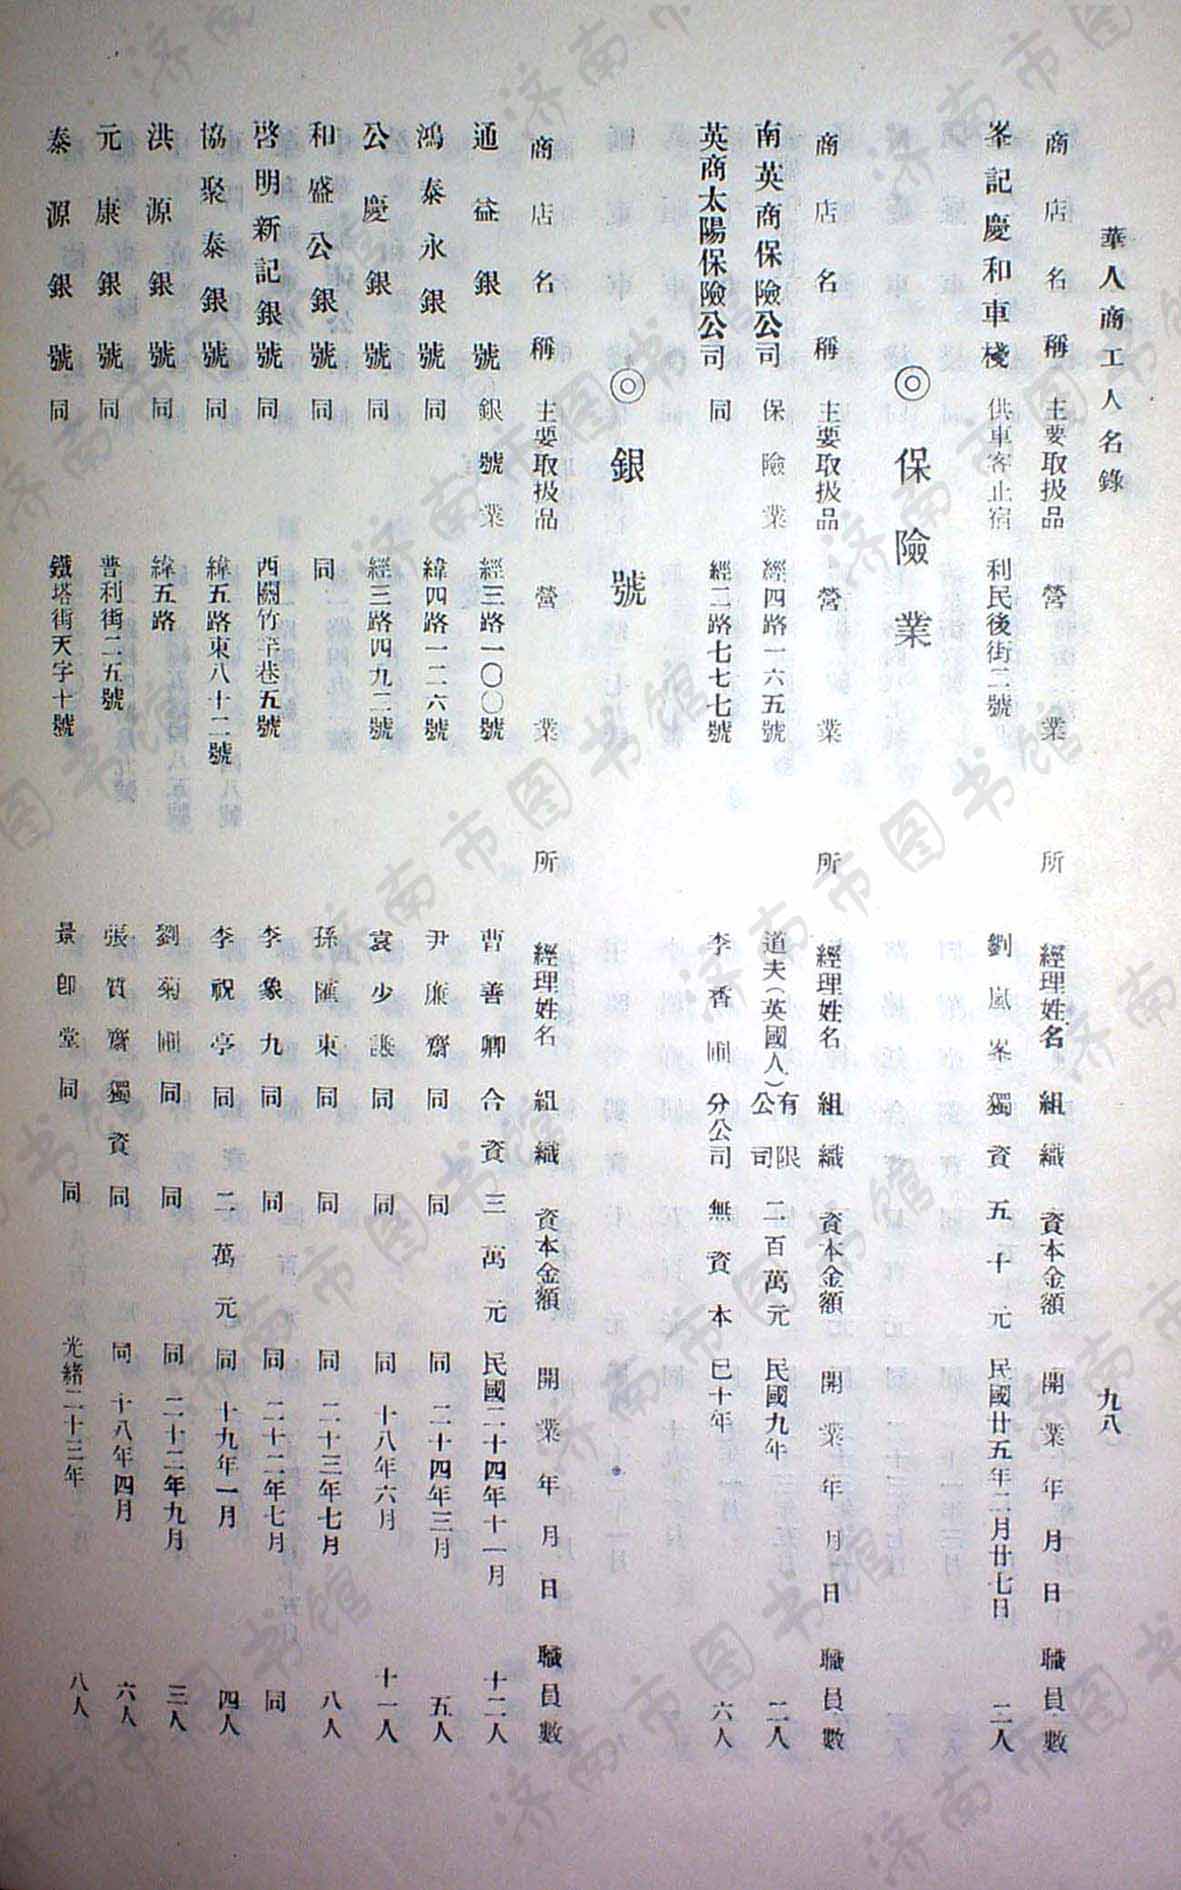 華人商工人名錄 九八
商店名稱 主要取扱品 營業所 經理姓名 組織 資本金額 開業年月日 職員數
峯記慶和車棧 供車客止宿 利民後街二號 劉嵐峯 獨資 五十元 民國廿五年二月廿七日 二人
◎保險業
商店名稱 主要取扱品 營業所 經理姓名 組織 資本金額 開業年月日 職員數
南英商保險公司 保險業 經四路一六五號 道夫（英國人） 有限公司 二百萬元 民國九年 二人
英商太陽保險公司 同 經二路七七七號 李香圃 分公司 無資本 已十年 六人
◎銀號
商店名稱 主要取扱品 營業所 經理姓名 組織 資本金額 開業年月日 職員數
通益銀號 銀號業 經三路一〇〇號 曹善卿 合資 三萬元 民國二十四年十一月 十二人
鴻泰永銀號 同 緯四路一二六號 尹廉齋 同 同 同二十四年三月 五人
公慶銀號 同 經三路四九二號 袁少謙 同 同 同十八年六月 十一人
和盛公銀號 同 同 孫匯東 同 同 同二十三年七月 八人
啓明新記銀號 同 西關竹竿巷五號 李象九 同 同 同二十二年七月 同
協聚泰銀號 同 緯五路東八十二號 李祝亭 同 二萬元 同十九年一月 四人
洪源銀號 同 緯五路 劉菊圃 同 同 同二十二年九月 三人
元康銀號 同 普利街二五號 張質齋 獨資 同 同十八年四月 六人
泰源銀號 同 鐵塔街天字十號 景卽堂 同 同 光緒二十三年 八人
济南市图书馆